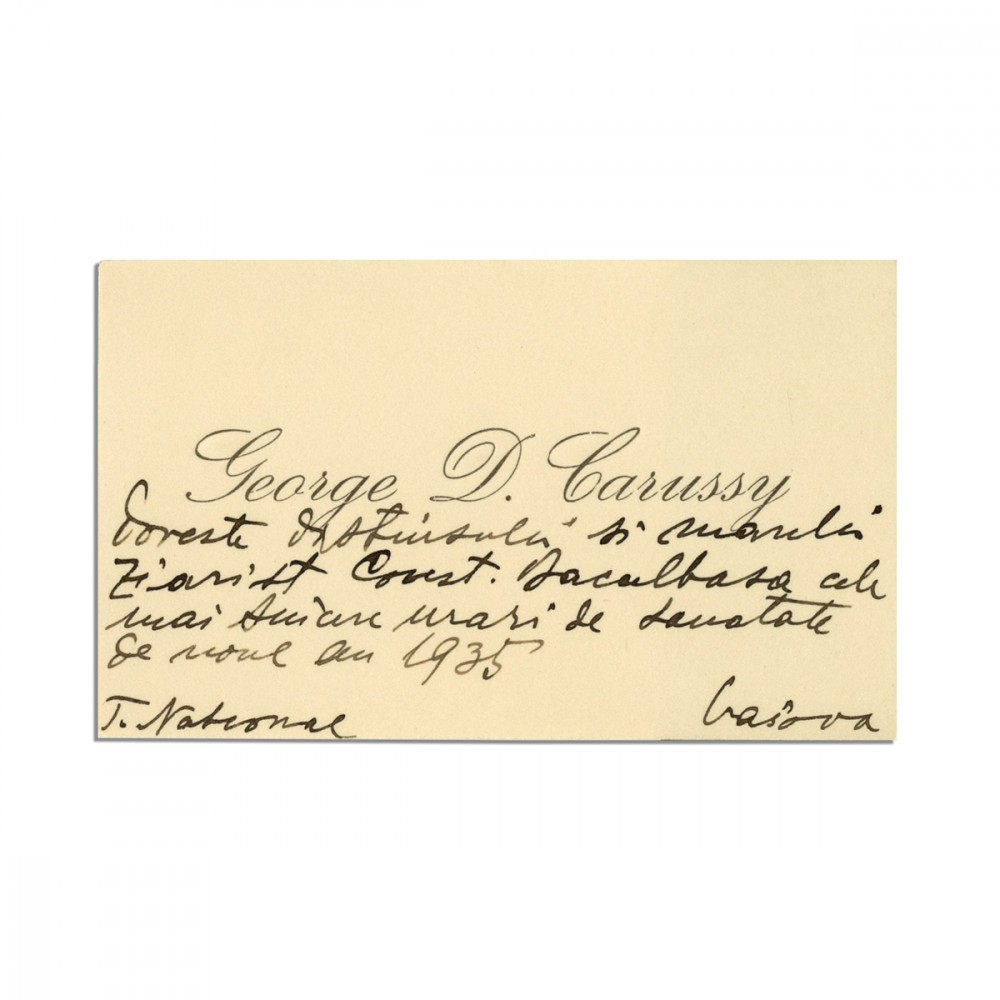 George D. Carussy
Doreste distinsului si marelui
Ziarist Const. Bacalbasa cele
mai sincere urari de sanatate
de noul an 1935
T. National Craiova